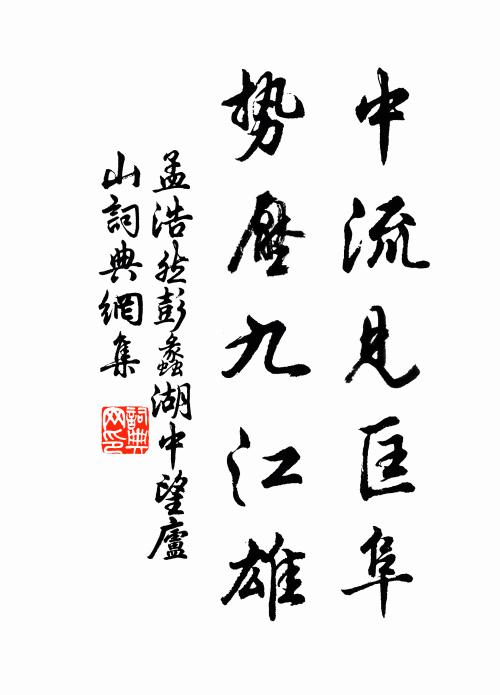 中流見匡阜
势壓九江雄
孟浩然彭蠡湖中望廬
山詞典網集
詞典
网印